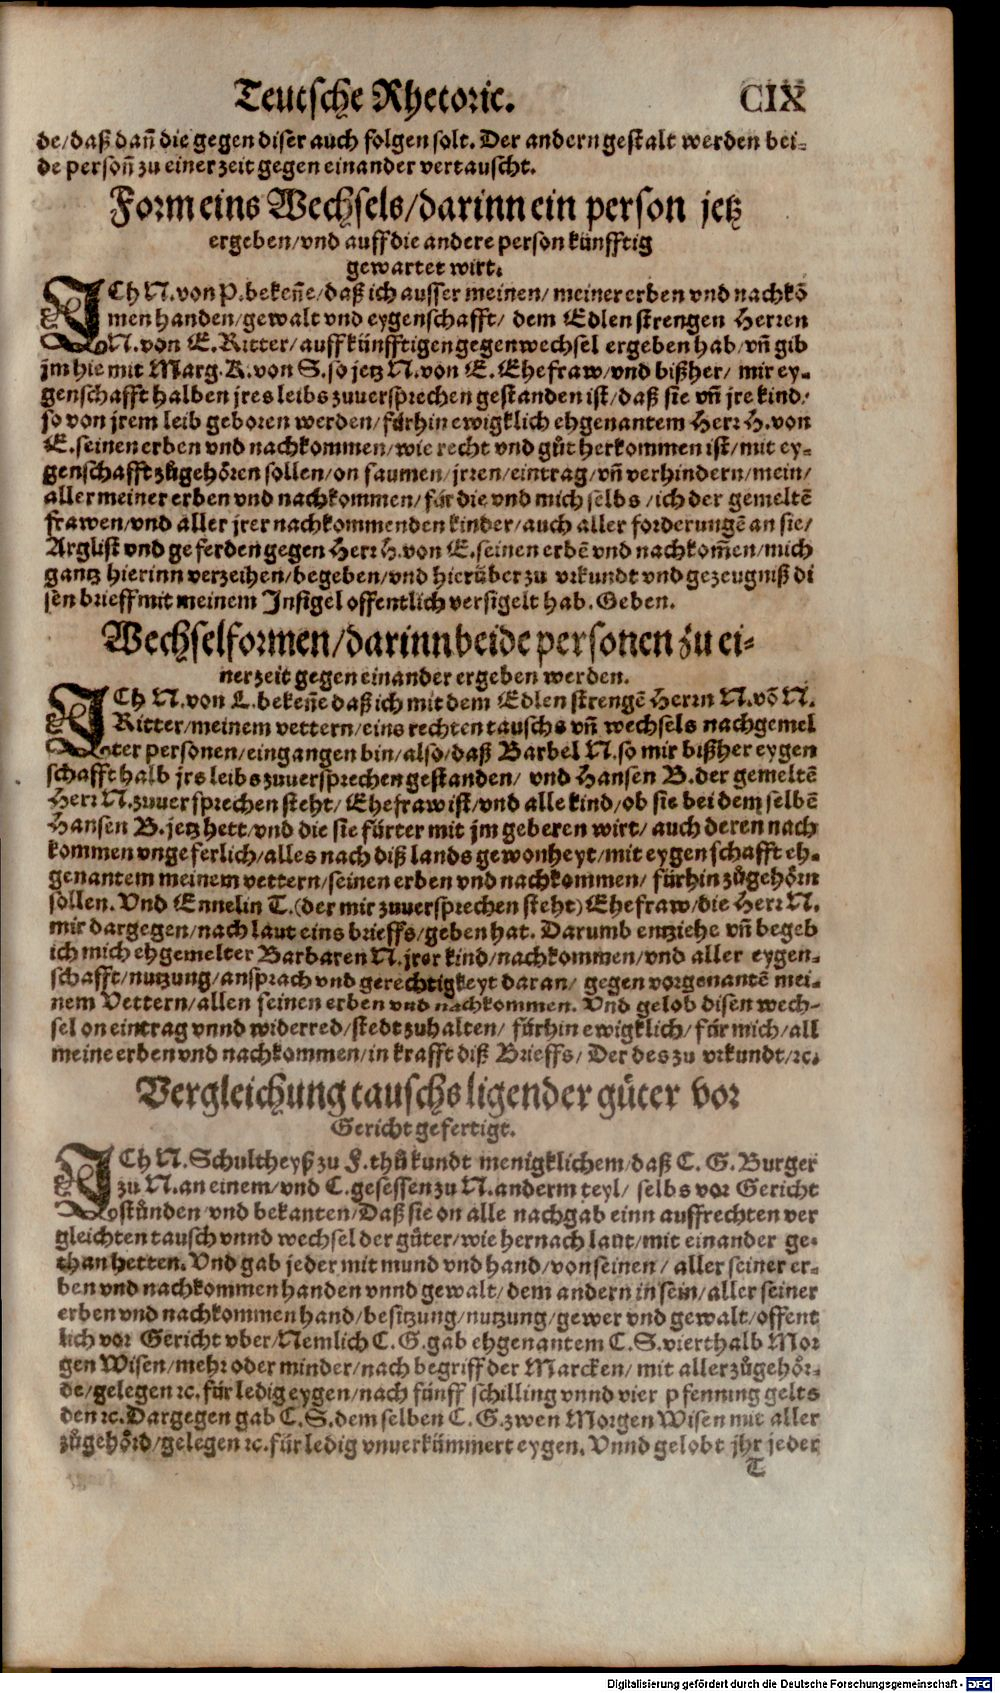 Teutsche Rhetoric. CIX
de/daß dañ die gegen diser auch folgen solt. Der andern gestalt werden bei-
de persoñ zu einer zeit gegen einander vertauscht.
Form eins Wechsels/darinn ein person jetz
ergeben/vnd auff die andere person künfftig
gewartet wirt.
JCh N. von P. bekeñe/daß ich ausser meinen/ meiner erben vnd nachkõ
men handen/gewalt vnd eygenschafft/ dem Edlen strengen Herren
N. von E. Ritter/auff künfftigen gegenwechsel ergeben hab/vñ gib
jm hie mit Marg. K. von S. so jetz N. von E. Ehefraw/vnd bißher/ mir ey-
genschafft halben jres leibs zuuersprechen gestanden ist/daß sie vñ jre kind/
so von jrem leib geboren werden/fürhin ewigklich ehgenantem Herr H. von
E. seinen erben vnd nachkommen/wie recht vnd gůt herkommen ist/mit ey-
genschafft zůgehören sollen/on saumen/jrren/eintrag/vñ verhindern/mein/
aller meiner erben vnd nachkommen/für die vnd mich selbs /ich der gemeltẽ
frawen/vnd aller jrer nachkommenden kinder/auch aller forderungẽ an sie/
Arglist vnd geferden gegen Herr H. von E. seinen erbẽ vnd nachkom̃en/mich
gantz hierinn verzeihen/begeben/vnd hierüber zu vrkundt vnd gezeugniß di
sen brieff mit meinem Insigel offentlich versigelt hab. Geben.
Wechselformen/darinn beide personen zu ei-
ner zeit gegen einander ergeben werden.
JCh N. von L. bekeñe daß ich mit dem Edlen strengẽ Herrn N. võ N.
Ritter/meinem vettern/eins rechten tauschs vñ wechsels nachgemel
ter personen/eingangen bin/also/daß Barbel N. so mir bißher eygen
schafft halb jrs leibs zuuersprechen gestanden/ vnd Hansen B. der gemeltẽ
Herr N. zuuersprechen steht/Ehefraw ist/vnd alle kind/ob sie bei dem selbẽ
Hansen B. jetz hett/vnd die sie fürter mit jm geberen wirt/ auch deren nach
kommen vngeferlich/alles nach diß lands gewonheyt/mit eygenschafft eh-
genantem meinem vettern/seinen erben vnd nachkommen/ fürhin zůgehörn
sollen. Vnd Ennelin T. (der mir zuuersprechen steht) Ehefraw/die Herr N.
mir dargegen/nach laut eins brieffs/geben hat. Darumb entziehe vñ begeb
ich mich ehgemelter Barbaren N. jrer kind/nachkommen/vnd aller eygen-
schafft/nutzung/ansprach vnd gerechtigkeyt daran/ gegen vorgenantẽ mei-
nem Vettern/allen seinen erben vnd nachkommen. Vnd gelob disen wech-
sel on eintrag vnnd widerred/stedt zuhalten/ fürhin ewigklich/für mich/all
meine erben vnd nachkommen/in krafft diß Brieffs/ Der des zu vrkundt/ꝛc.
Vergleichung tauschs ligender güter vor
Gericht gefertigt.
JCh N. Schultheyß zu F. thů kundt menigklichem/daß C. G. Burger
zu N. an einem/vnd C. gesessen zu N. anderm teyl/ selbs vor Gericht
stůnden vnd bekanten/Daß sie on alle nachgab einn auffrechten ver
gleichten tausch vnnd wechsel der güter/wie hernach laut/mit einander ge-
than hetten. Vnd gab jeder mit mund vnd hand/von seinen / aller seiner er-
ben vnd nachkommen handen vnnd gewalt/dem andern in sein/aller seiner
erben vnd nachkommen hand/besitzung/nutzung/gewer vnd gewalt/offent
lich vor Gericht vber/Nemlich C. G. gab ehgenantem C. S. vierthalb Mor
gen Wisen/mehr oder minder/nach begriff der Marcken/ mit aller zůgehör-
de/gelegen ꝛc. für ledig eygen/nach fünff schilling vnnd vier pfenning gelts
den ꝛc. Dargegen gab C. S. dem selben C. G. zwen Morgen Wisen mit aller
zůgehörd/gelegen ꝛc. für ledig vnuerkümmert eygen. Vnnd gelobt jhr jeder
T
Digitalisierung gefördert durch die Deutsche Forschungsgemeinschaft - DFG